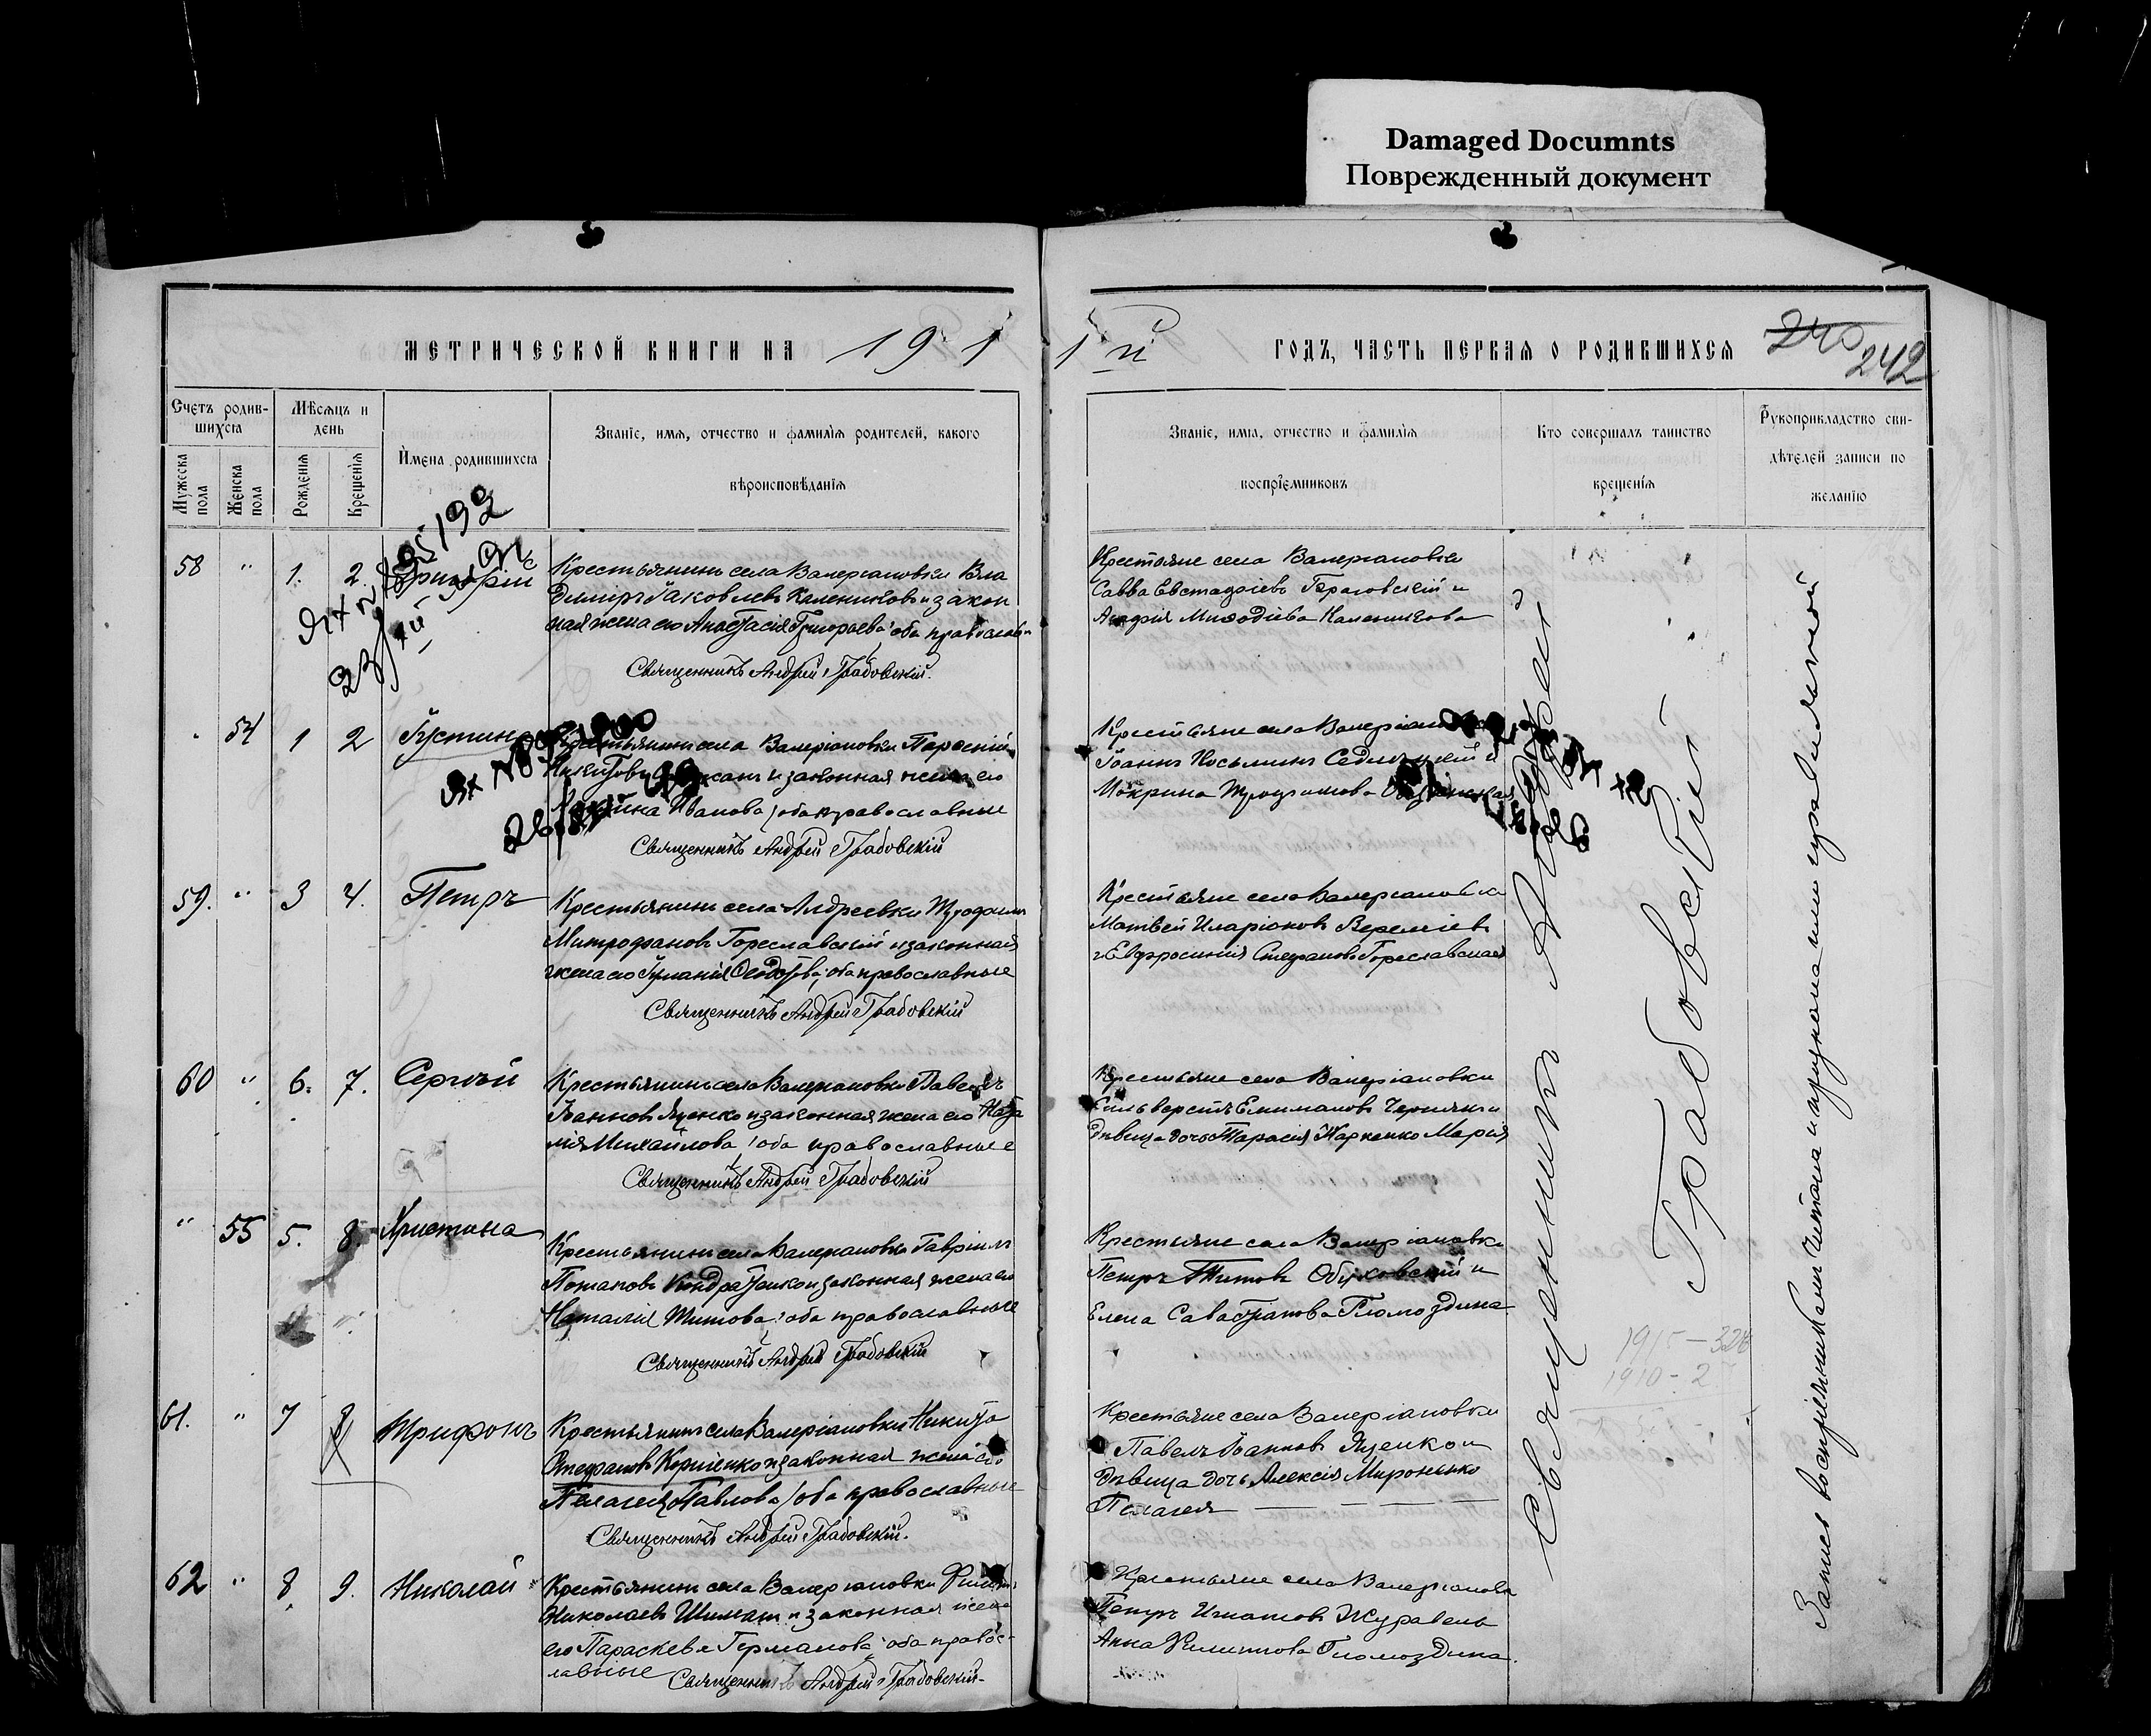 Damaged Documnts
Поврежденный документ
МЕТРИЧЕСКОЙ КНИГИ НА 191
1 й ГОДЪ, ЧАСТЬ ПЕРВАЯ О РОДИВШИХСЯ
240
242
Счетъ родившихся
Мужеска пола
Женска пола
Мѣсяцъ и день
Рожденія
Крещенія
Имена родившихся
Званіе, имя, отчество и фамилія родителей, какого
вѣроисповѣданія
Званіе, имя, отчество и фамилія
воспріемниковъ
Кто совершалъ таинство
крещенія
Рукоприкладство сви-
дѣтелей записи по
желанію
58 " 1. 2. Григорій
Крестьянинъ села Валеріановки Вла
диміръ Іаковлевъ Калениковъ и закон
ная жена его Анастасія Григорьева оба православн
Священникъ Андрей Грабовскій.
Крестьяне села Валеріановки
Савва Евстафіевъ и
Меѳодіева Каленикова
" 54 1 2 Іустина
Крестьянинъ села Валеріановки
и законная жена его
Иванова, оба православные
Священникъ Андрей Грабовскій
Крестьяне села
Іоаннъ Косьминъ и
Мокрина
59. " 3 4. Петръ
Крестьянинъ села Андреевки
Митрофановъ Гореславскій и законная
жена его Іуліанія Ѳеодотова, оба православные
Священникъ Андрей Грабовскій
Крестьяне села Валеріановки
Матвей Иларіоновъ Веремієвъ
и Евфросинія Стефанова Гореславская
60 " 6. 7. Сергѣй
Крестьянинъ села Валеріановки Павелъ
Іоанновъ Яценко и законная жена его Ната
лія Михайлова, оба православные
Священникъ Андрей Грабовскій
Крестьяне села Валеріановки
Сильверстъ Чернякъ и
дѣвица дочь Тарасія Марія
" 55 5. 8. Христина
Крестьянинъ села Валеріановки Гавріилъ
Потаповъ Кондратенко и законная жена его
Наталія Титова, оба православные
Священникъ Андрей Грабовскій
Крестьяне села Валеріановки
Петръ Титовъ Обуховскій и
Елена Савастіанова Гломоздина
61. " 7 8 Трифонъ
Крестьянинъ села Валеріановки Никита
Стефановъ Корніенко и законная жена его
Пелагея Павлова, оба православные
Священникъ Андрей Грабовскій.
Крестьяне села Валеріановки
Павелъ Іоанновъ Яценко и
дѣвица дочь Алексія Миронько
Пелагея
62 " 8. 9. Николай
Крестьянинъ села Валеріановки
Николаевъ и законная жена
его Параскева Германова оба право
лавные Священникъ Андрей Грабовскій
Крестьяне села Валеріановки
Петръ Игнатовъ Журавель
Анна Филиппова Гломоздина.
Священникъ Андрей
Грабовскій
1915 - 328
1910 - 2
Запись воспріемниками читана и признана ими правильной